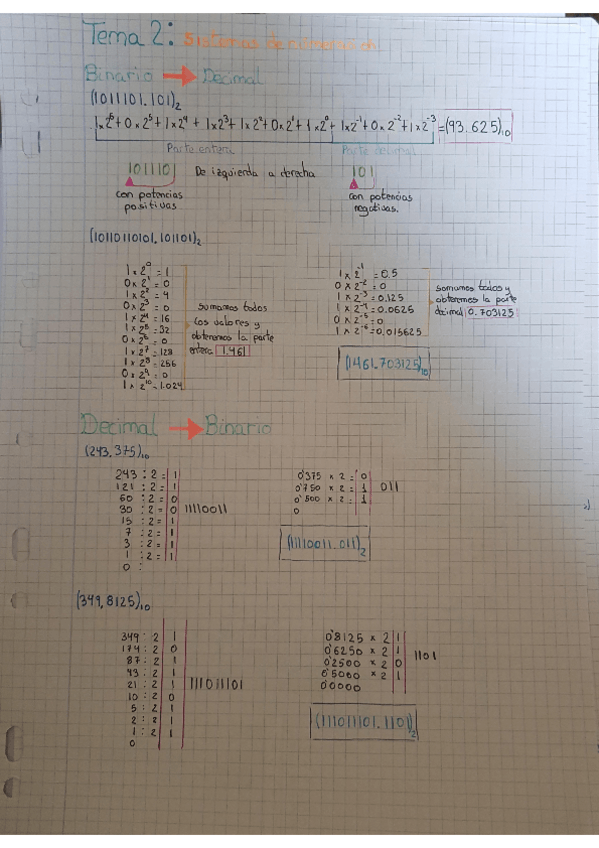 Tema 2: Sistemas de numeración
Binario → Decimal
(1011101.101)₂
1×2⁶+0×2⁵+1×2⁴+1×2³+1×2²+0×2¹+1×2⁰+1×2⁻¹+0×2⁻²+1×2⁻³=(93.625)₁₀
Parte entera Parte decimal
101110) De izquierda a derecha 101
con potencias positivas
con potencias negativas.
(10110110101,101101)₂
1×2⁰=1
0×2¹=0
1×2²=4
0×2³=0
1×2⁴=16
1×2⁵=32
0×2⁶=0
1×2⁷=128
1×2⁸=256
0×2⁹=0
1×2¹⁰=1.024
sumamos todos
los valores y
obtenemos la parte
entera 1.461
1×2⁻¹=0.5
0×2⁻²=0
1×2⁻³=0.125
1×2⁻⁴=0.0625
0×2⁻⁵=0
1×2⁻⁶=0,015625
sumamos todos y
obtenemos la parte
decimal 0.703125
(1461,703125)₁₀
Decimal → Binario
(243,375)₁₀
243:2=1
121:2=1
60:2=0
30:2=0 11110011
15:2=1
7:2=1
3:2=1
1:2=1
0:
0'375×2=0
0'750×2=1 011
0'500×2=1
0
(11110011.011)₂
(349,8125)₁₀
349:2 1
174:2 0
87:2 1
43:2 1
21:2 1 111011101
10:2 0
5:2 1
2:2 1
1:2 1
0
0'8125×2 1
0'6250×2 1 1101
0'2500×2 0
0'5000×2 1
0'0000
(111011101.1101)₂